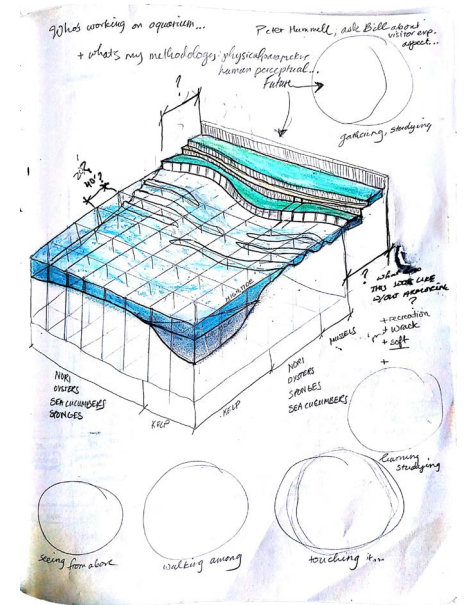 Who's working on aquarium...
Peter Hummell, ask Bill about
visitor exp.
aspect...
+ what's my methodology: physical parameter,
human perceptual...
?
Future
gathering, studying
40'?
HIGH TIDE
? what does
THIS LOOK LIKE
W/OUT ARMORING
?
+ recreation
+ wrack
+ soft
+
MUSSELS
NORI
OYSTERS
SPONGES
SEA CUCUMBERS
KELP
KELP
NORI
OYSTERS
SEA CUCUMBERS
SPONGES
learning
studying
seeing from above
walking among
touching it...